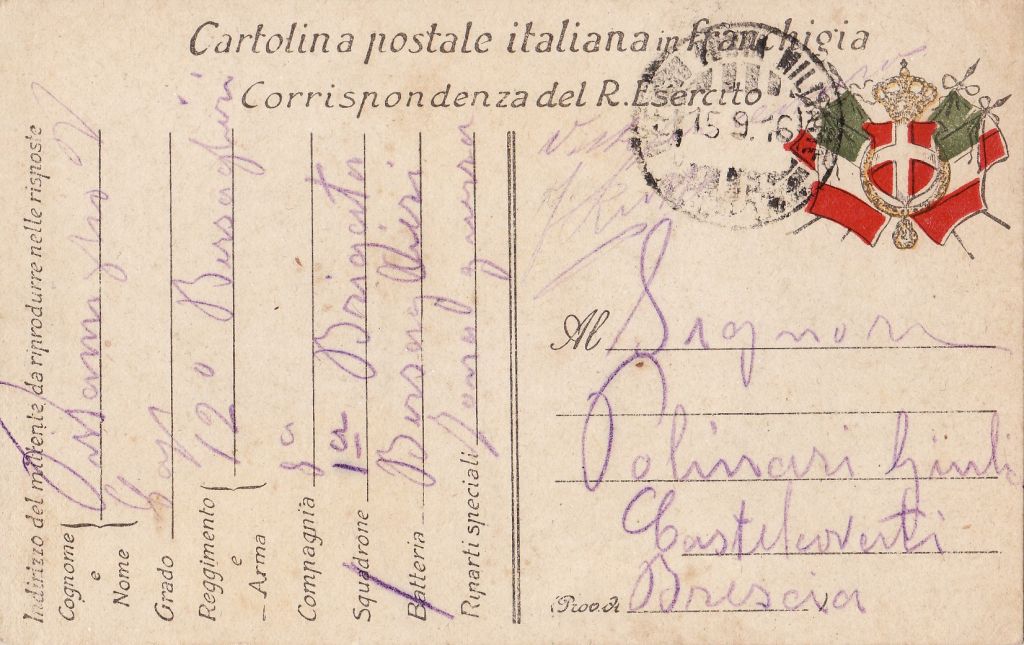 Cartolina postale italiana in franchigia
Corrispondenza del R. Esercito
15 9. 16
Indirizzo del mittente da riprodurre nelle risposte
Cognome
e
Nome
Grado
Reggimento
e
Arma
12o Bersaglieri
Compagnia 8a
Squadrone 1a Brigata
Batteria Bersaglieri
Riparti speciali Zona di guerra
Al Signor
Polinari
Brescia
(Prov. di